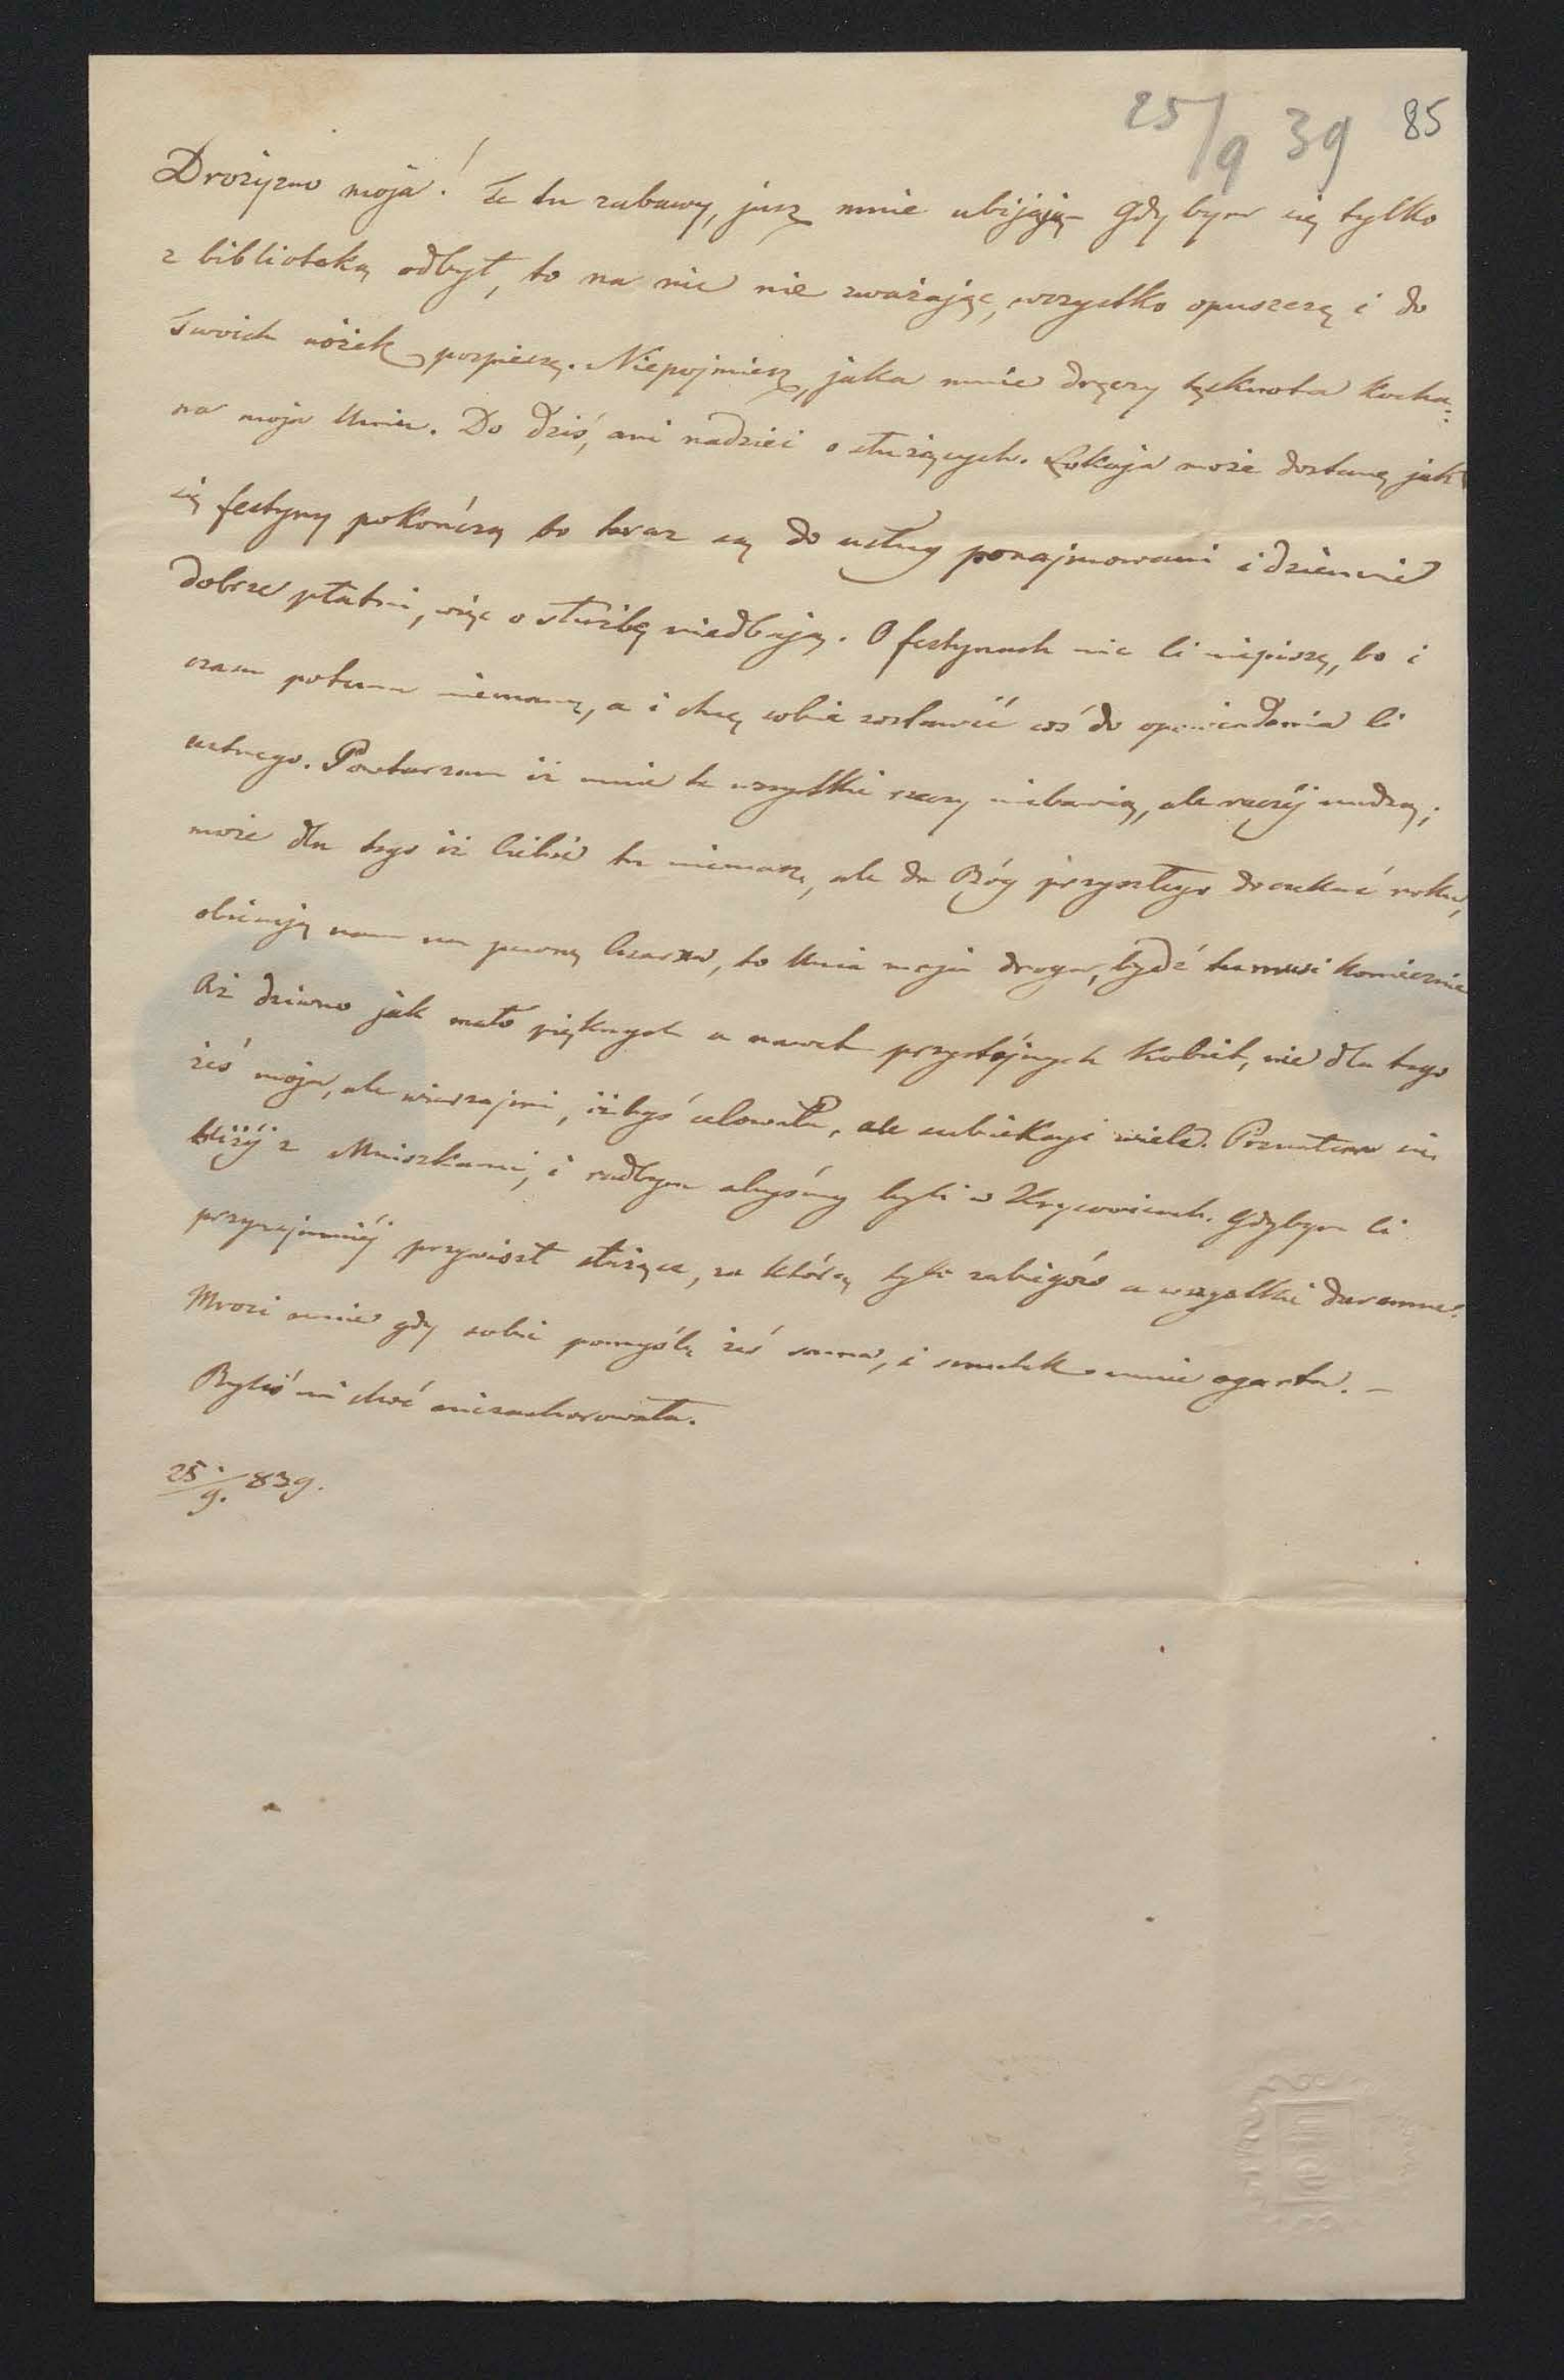 25/9 39 85
Drożyzno moja! Te tu zabawy, jusz mnie ubijają – gdybym się tylko
z biblioteką odbył, to na nic nie zważając, wszystko opuszczę i do
Twoich nóżek pospieszę. Niepojmiesz, jaka mnie dręczy tęsknota kocha=
na moja Uniu. Do dziś, ani nadziei o służących. Lokaja może dostanę jak
się festyny pokończą bo teraz są do usług ponajmowani i dziennie
dobrze płatni, więc o służbę niedbają. O festynach nic Ci niepiszę, bo i
czasu potemu niemam, a i chcę sobie zostawić coś do opowiadania Ci
ustnego. Powtarzam iż mnie te wszystkie rzeczy niebawią, ale raczéj nudzą;
może dla tego iż Ciebie tu niemasz, ale da Bóg przyszłego doczekać roku,
obiecują nam na pewno Cesarza, to Unia moja droga, bydź tu musi koniecznie
Aż dziwno jak mało pięknych a nawet przystójnych kobiet, nie dla tego
żeś moja, ale wierzaj mi, iżbyś celowała, ale subiekcyi wiele. Poznałem się
bliżéj z Mniszkami, i radbym abyśmy byli w Krysowicach. Gdybym Ci
przynajmniéj przywiózł służące, za którą tyle zabiegów a wszystkie daremne.
Mrozi mnie gdy sobie pomyślę żeś sama, i smutek mnie ogarta. –
Byleś mi choć niezachorowała.
25./9. 839.